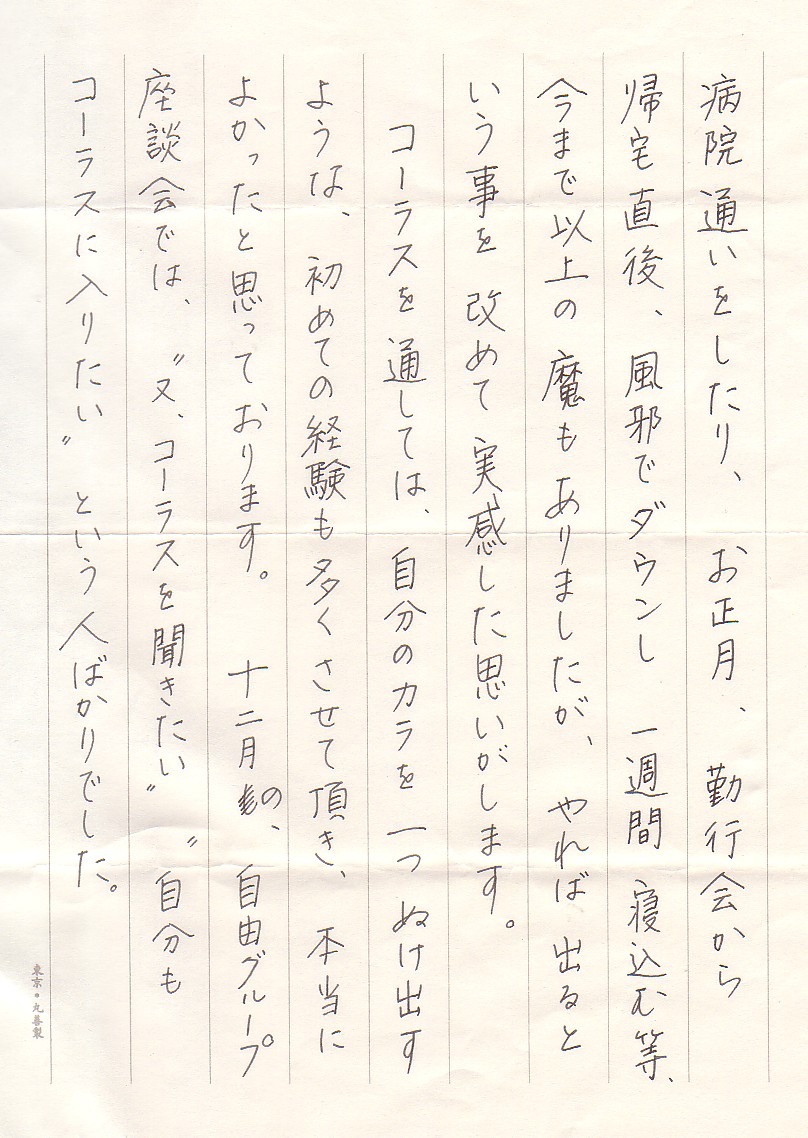 病院通いをしたり、お正月、勤行会から
帰宅直後、風邪でダウンし一週間寝込む等、
今まで以上の魔もありましたが、やれば出ると
いう事を改めて実感した思いがします。
コーラスを通しては、自分のカラを一つぬけ出す
ような、初めての経験も多くさせて頂き、本当に
よかったと思っております。十二月の、自由グループ
座談会では、〝又、コーラスを聞きたい〟〝自分も
コーラスに入りたい〟という人ばかりでした。
東京・丸善製